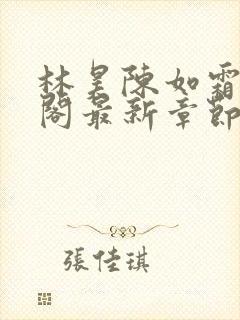 林昊陳如霜
閣最新章節
張佳琪